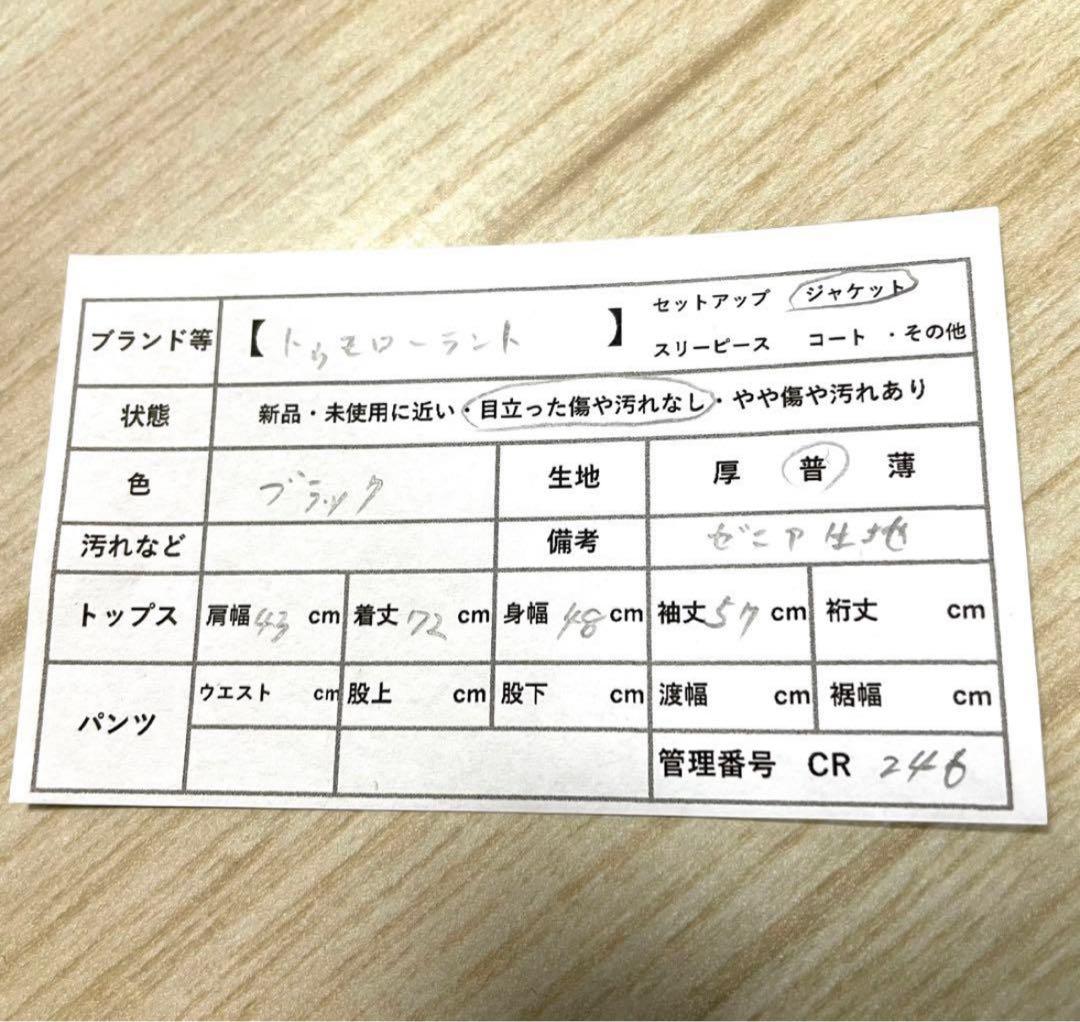 ブランド等 【 トゥモローラント 】 セットアップ ジャケット
スリーピース コート ・その他
状態 新品・未使用に近い・目立った傷や汚れなし・やや傷や汚れあり
色 ブラック 生地 厚 普 薄
汚れなど 備考 ゼニア生地
トップス 肩幅 43 cm 着丈 72 cm 身幅 48 cm 袖丈 57 cm 裄丈 cm
パンツ ウエスト cm 股上 cm 股下 cm 渡幅 cm 裾幅 cm
管理番号 CR 246